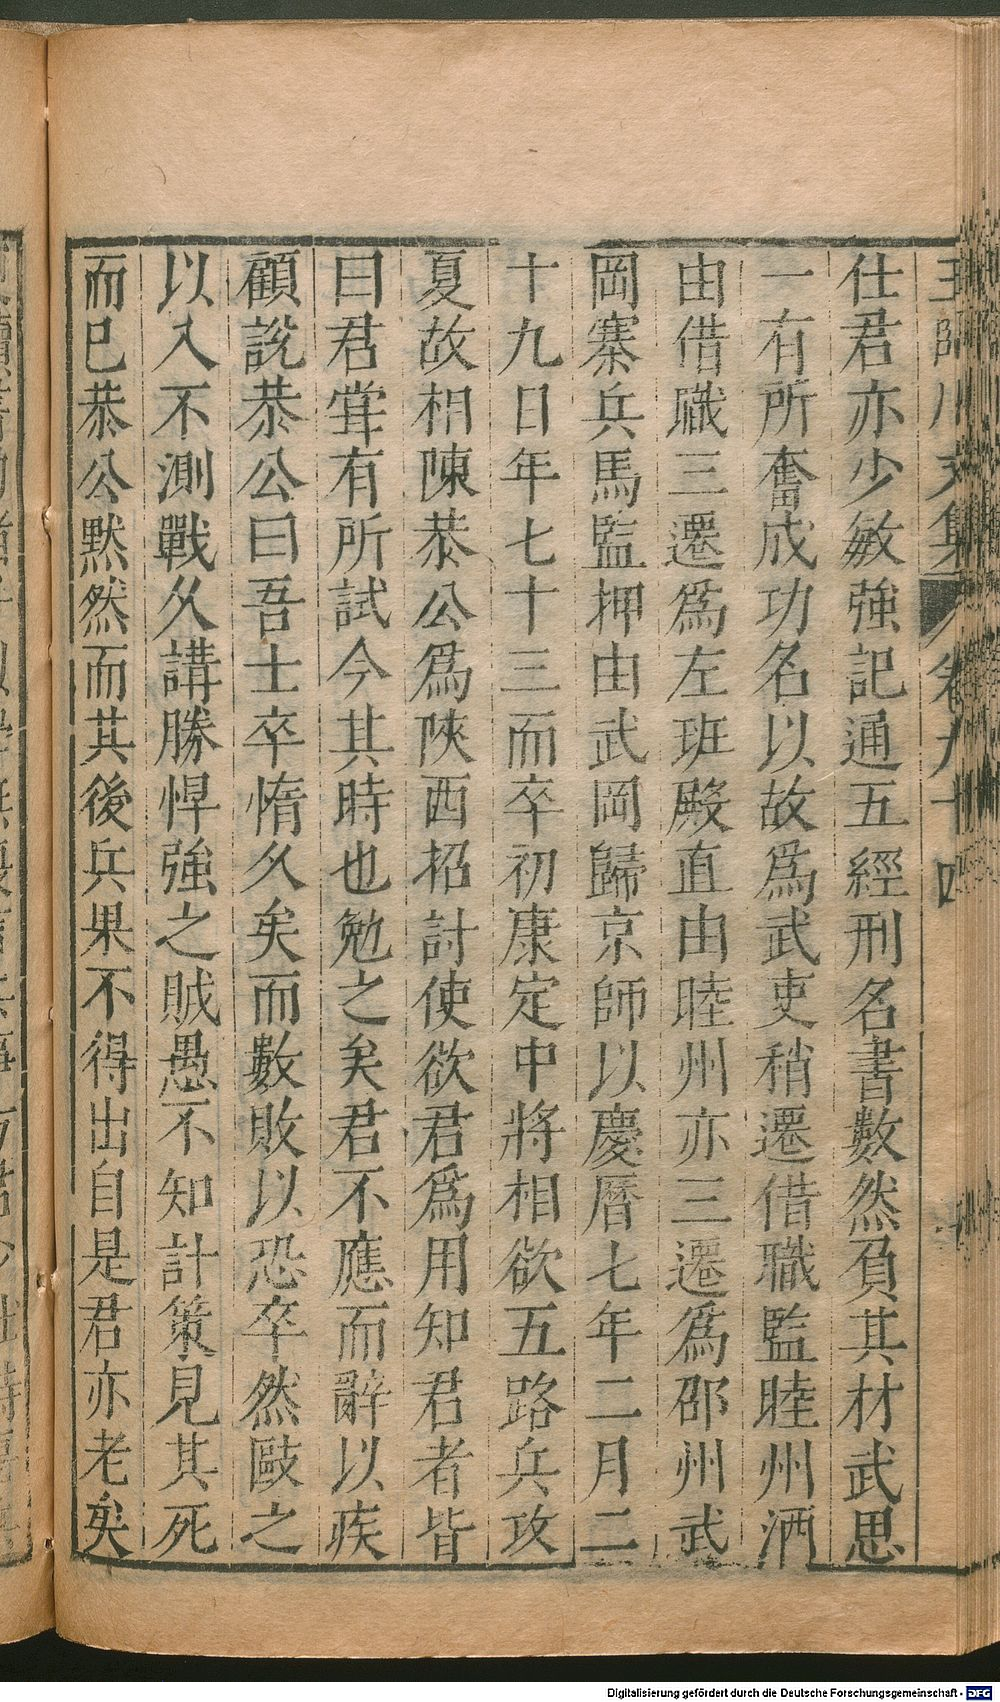 王臨川文集 卷九十四
仕君亦少敏強記通五經刑名書數然負其材武思
一有所奮成功名以故爲武吏稍遷借職監睦州酒
由借職三遷爲左班殿直由睦州亦三遷爲邵州武
岡寨兵馬監押由武岡歸京師以慶曆七年二月二
十九日年七十三而卒初康定中將相欲五路兵攻
夏故相陳恭公爲陝西招討使欲君爲用知君者皆
曰君甞有所試今其時也勉之矣君不應而辭以疾
顧說恭公曰吾士卒惰久矣而數敗以恐卒然敺之
以入不測戰久講勝悍強之賊愚不知計策見其死
而已恭公黙然而其後兵果不得出自是君亦老矣
Digitalisierung gefördert durch die Deutsche Forschungsgemeinschaft - DFG